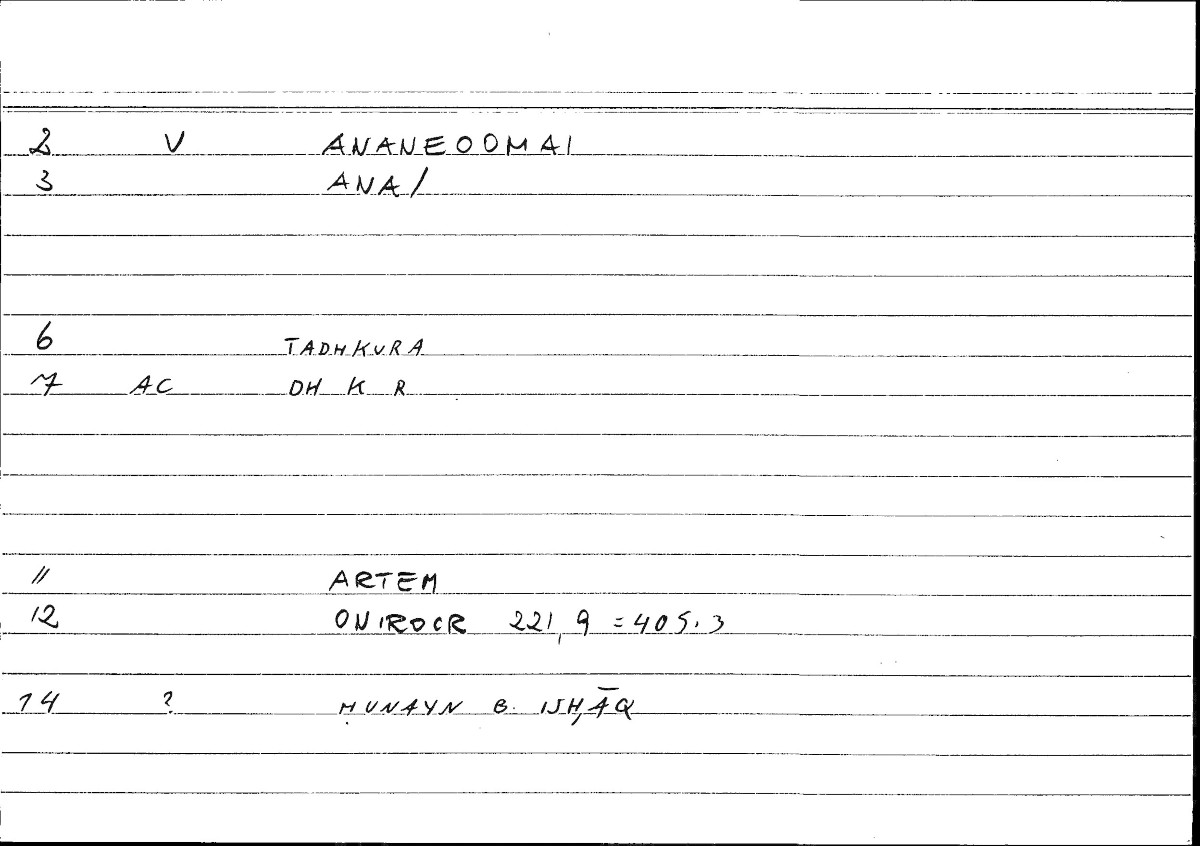 2 V ANANEOOMAI
3 ANA/
6 TADHKURA
7 AC DH K R
11 ARTEM
12 ONIROCR 221,9 = 405.3
14 ? ḤUNAYN B. ISḤĀQ